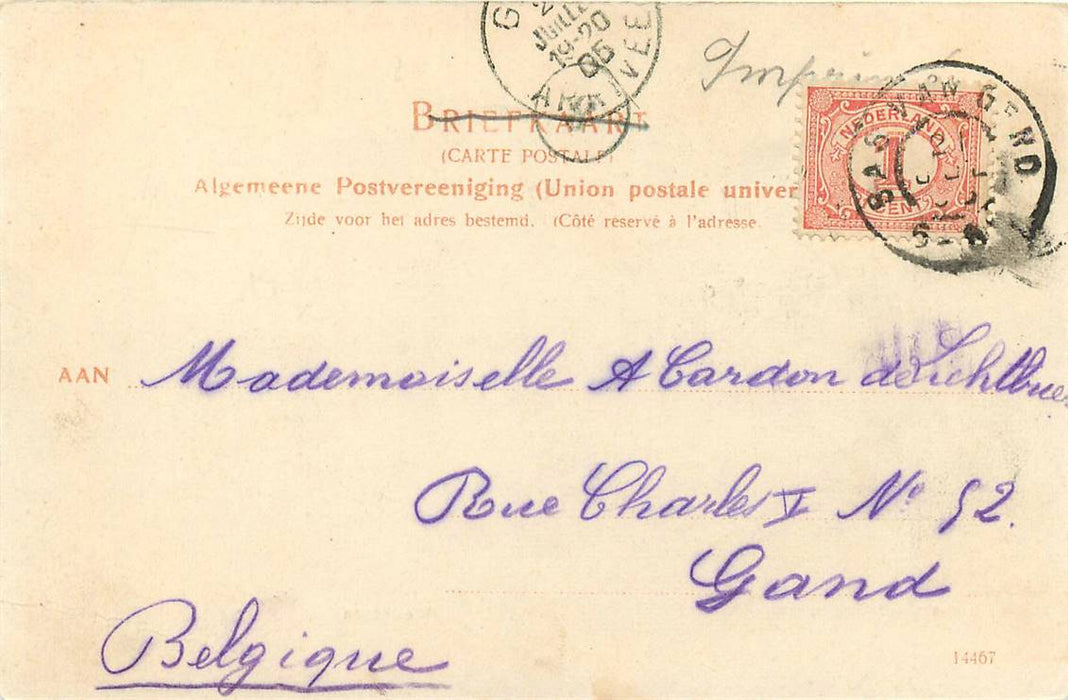 Imprimé
BRIEFKAART
(CARTE POSTALE)
Algemeene Postvereeniging (Union postale univer
Zijde voor het adres bestemd. (Côté reservé à l'adresse.
JUIL
19-20
05
NEDERLAND
1
CENT
SAS VAN GEND
AAN Mademoiselle A Cardon de
Rue Charles V Nº 52.
Gand
Belgique
14467